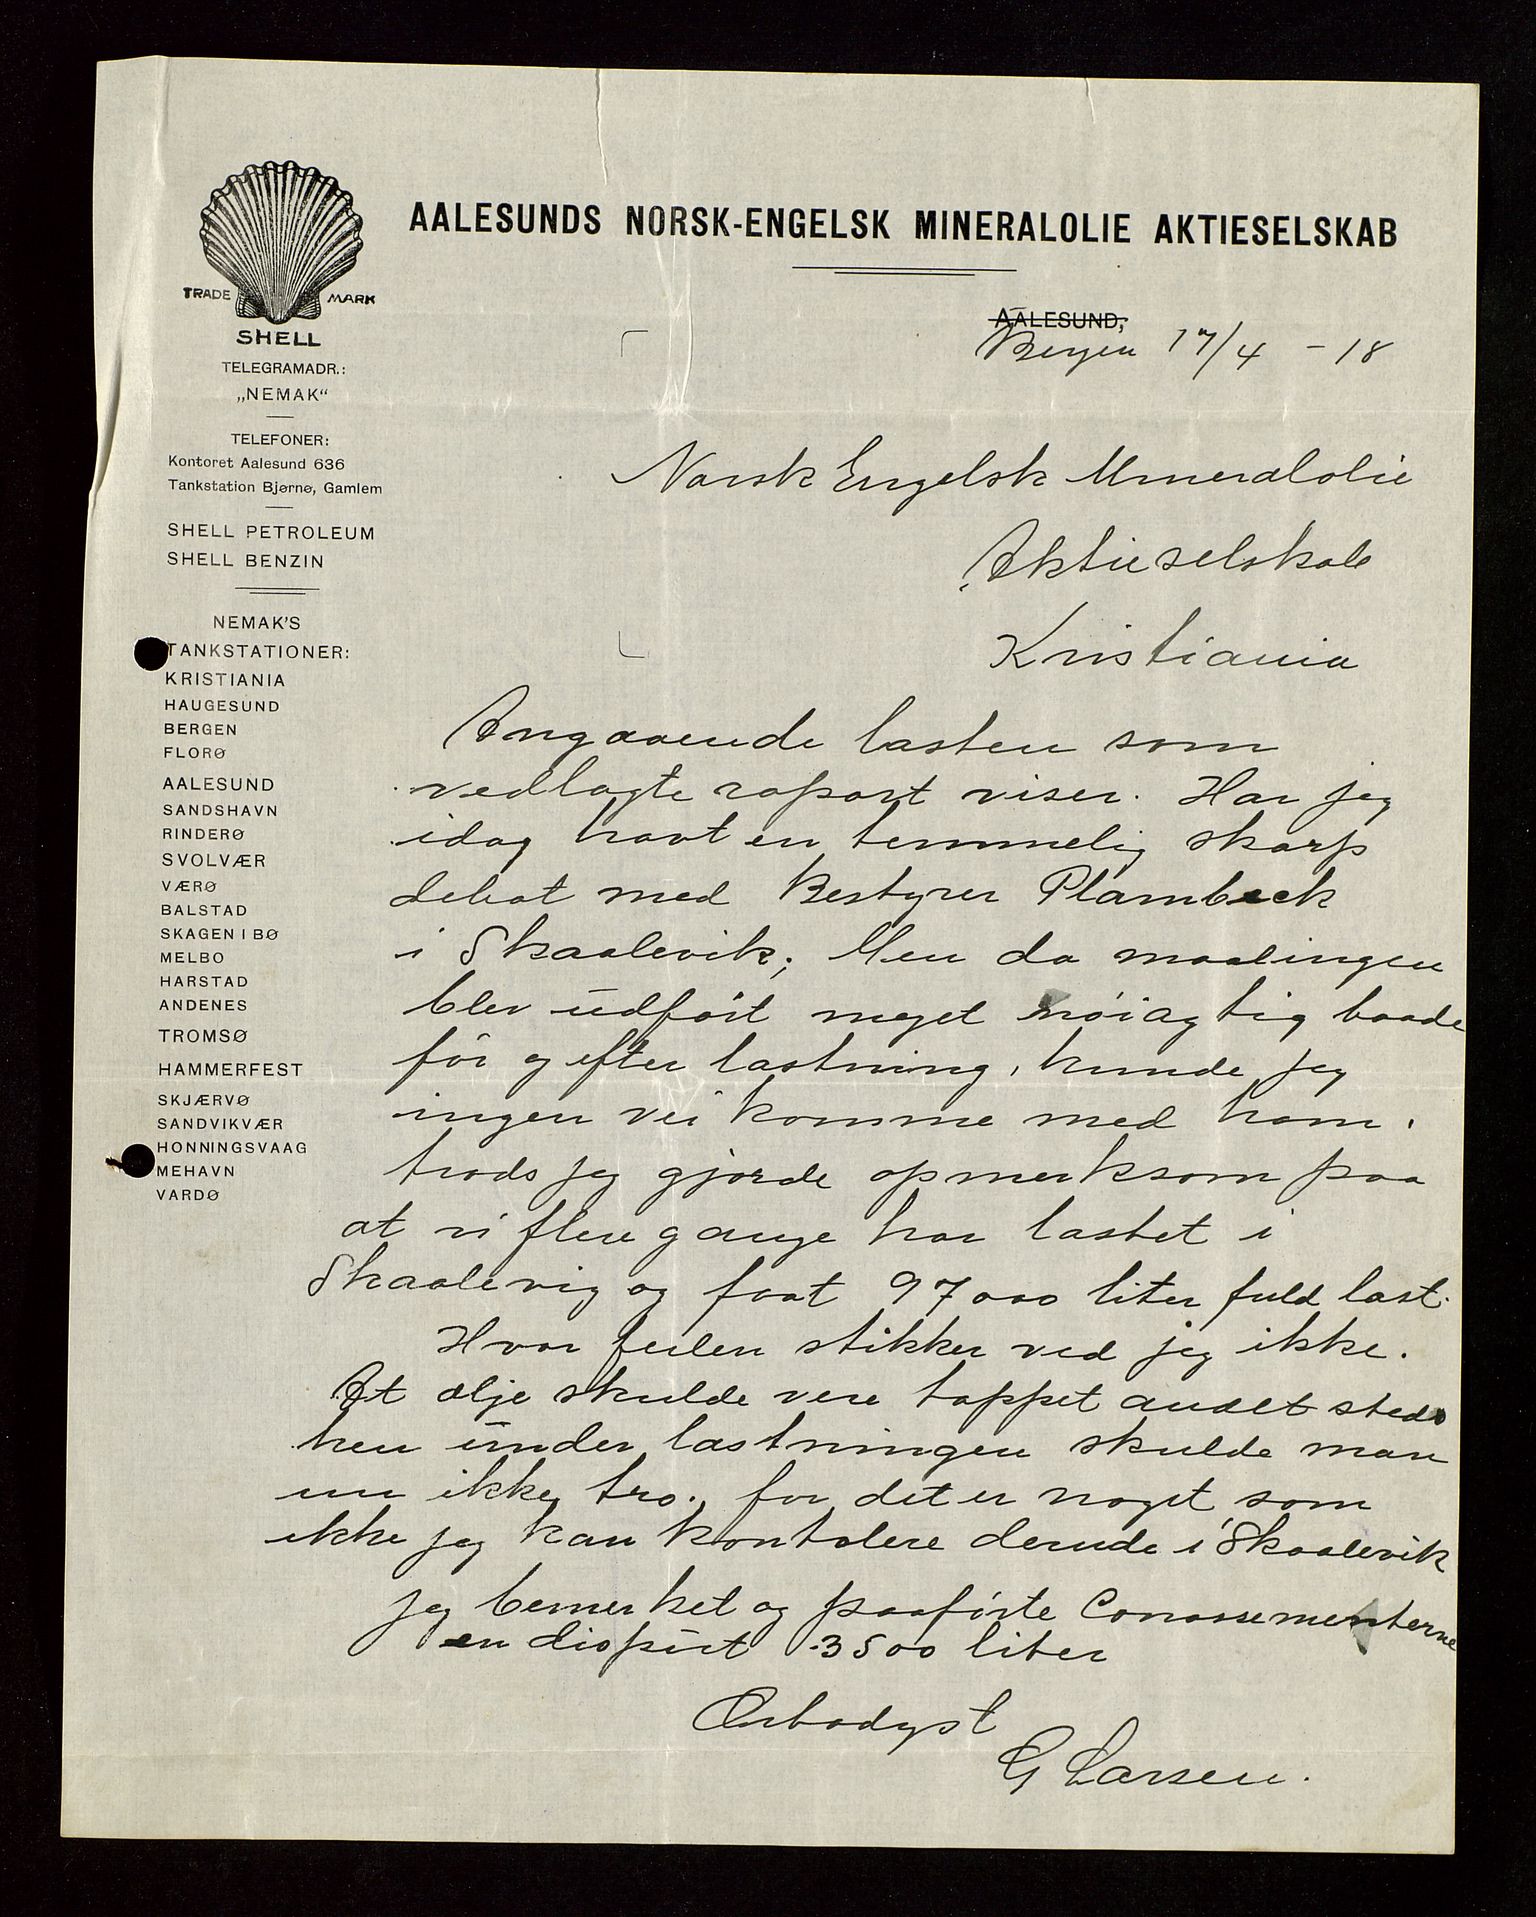 AALESUNDS NORSK-ENGELSK MINERALOLIE AKTIESELSKAB
TRADE MARK
SHELL
TELEGRAMADR.:
„NEMAK“
TELEFONER:
Kontoret Aalesund 636
Tankstation Bjørnø, Gamlem
SHELL PETROLEUM
SHELL BENZIN
NEMAK'S
TANKSTATIONER:
KRISTIANIA
HAUGESUND
BERGEN
FLORØ
AALESUND
SANDSHAVN
RINDERØ
SVOLVÆR
VÆRØ
BALSTAD
SKAGEN I BØ
MELBO
HARSTAD
ANDENES
TROMSØ
HAMMERFEST
SKJÆRVØ
SANDVIKVÆR
HONNINGSVAAG
MEHAVN
VARDØ
AALESUND,
Bergen 17/4 - 18
Norsk Engelsk Mineralolie
Aktieselskab
Kristiania
Angaaende lasten som
vedlagte raport viser. Har jeg
idag havt en temmelig skarp
debat med Bestyrer Plambeck
i Skaalevik; Men da maalingen
blev udfört meget nöiagtig baade
för og efter lastning, kunde jeg
ingen vei komme med ham.
trods jeg gjorde opmerksom paa
at vi flere gange har lastet i
Skaalevig og faat 97000 liter fuld last.
Hvor feilen stikker ved jeg ikke.
At olje skulde vere tappet andet steds
hen under lastningen skulde man
nu ikke tro. for det er noget som
ikke jeg kan kontolere derude i Skaalevik
jeg bemerket og paaförte Conossementerne
en dispüt 3500 liter
Ærbødigst
G Larsen.